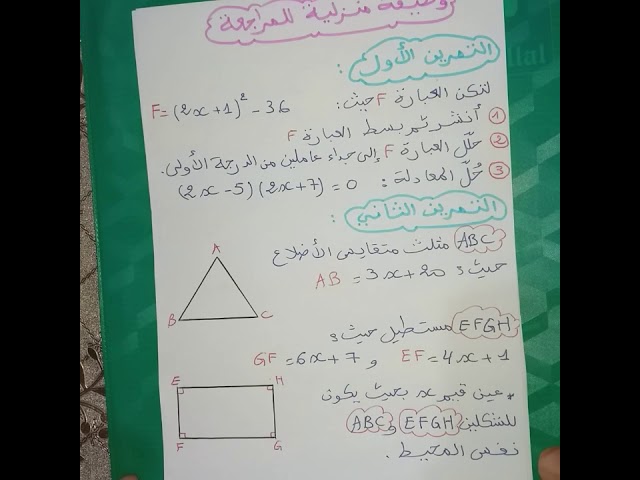 وظيفة منزلية للمراجعة
التمرين الأول :
لتكن العبارة F حيث: F = (2x+1)² - 36
① أنشر ثم بسط العبارة F
② حلّل العبارة F إلى جداء عاملين من الدرجة الأولى.
③ حُلّ المعادلة: (2x-5)(2x+7) = 0
التمرين الثاني :
ABC مثلث متقايس الأضلاع
حيث: AB = 3x+20
A
B C
EFGH مستطيل حيث:
EF = 4x+1 و GF = 6x+7
E H
F G
* عين قيم x بحيث يكون
للشكلين EFGH و ABC
نفس المحيط.